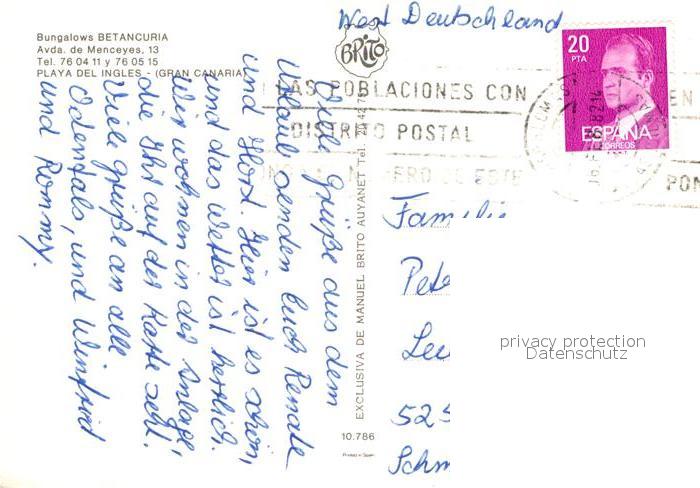 Bungalows BETANCURIA
Avda. de Menceyes, 13
Tel. 76 04 11 y 76 05 15
PLAYA DEL INGLES - (GRAN CANARIA)
West Deutschland
BRITO
20
PTA
ESPAÑA
CORREOS
LAS POBLACIONES CON
DISTRITO POSTAL
EN
PON
Viele Grüße aus dem
Urlaub senden Euch Renate
und Horst. Hier ist es schön,
und das Wetter ist herrlich.
Wir wohnen in der Anlage
die Ihr auf der Karte seht!
Viele Grüße an alle
Odenthals, und Winfried
und Rommy.
EXCLUSIVA DE MANUEL BRITO AUYANET Tel.
10.786
Printed in Spain
Familie
Pete
Leu
525
Schm
privacy protection
Datenschutz